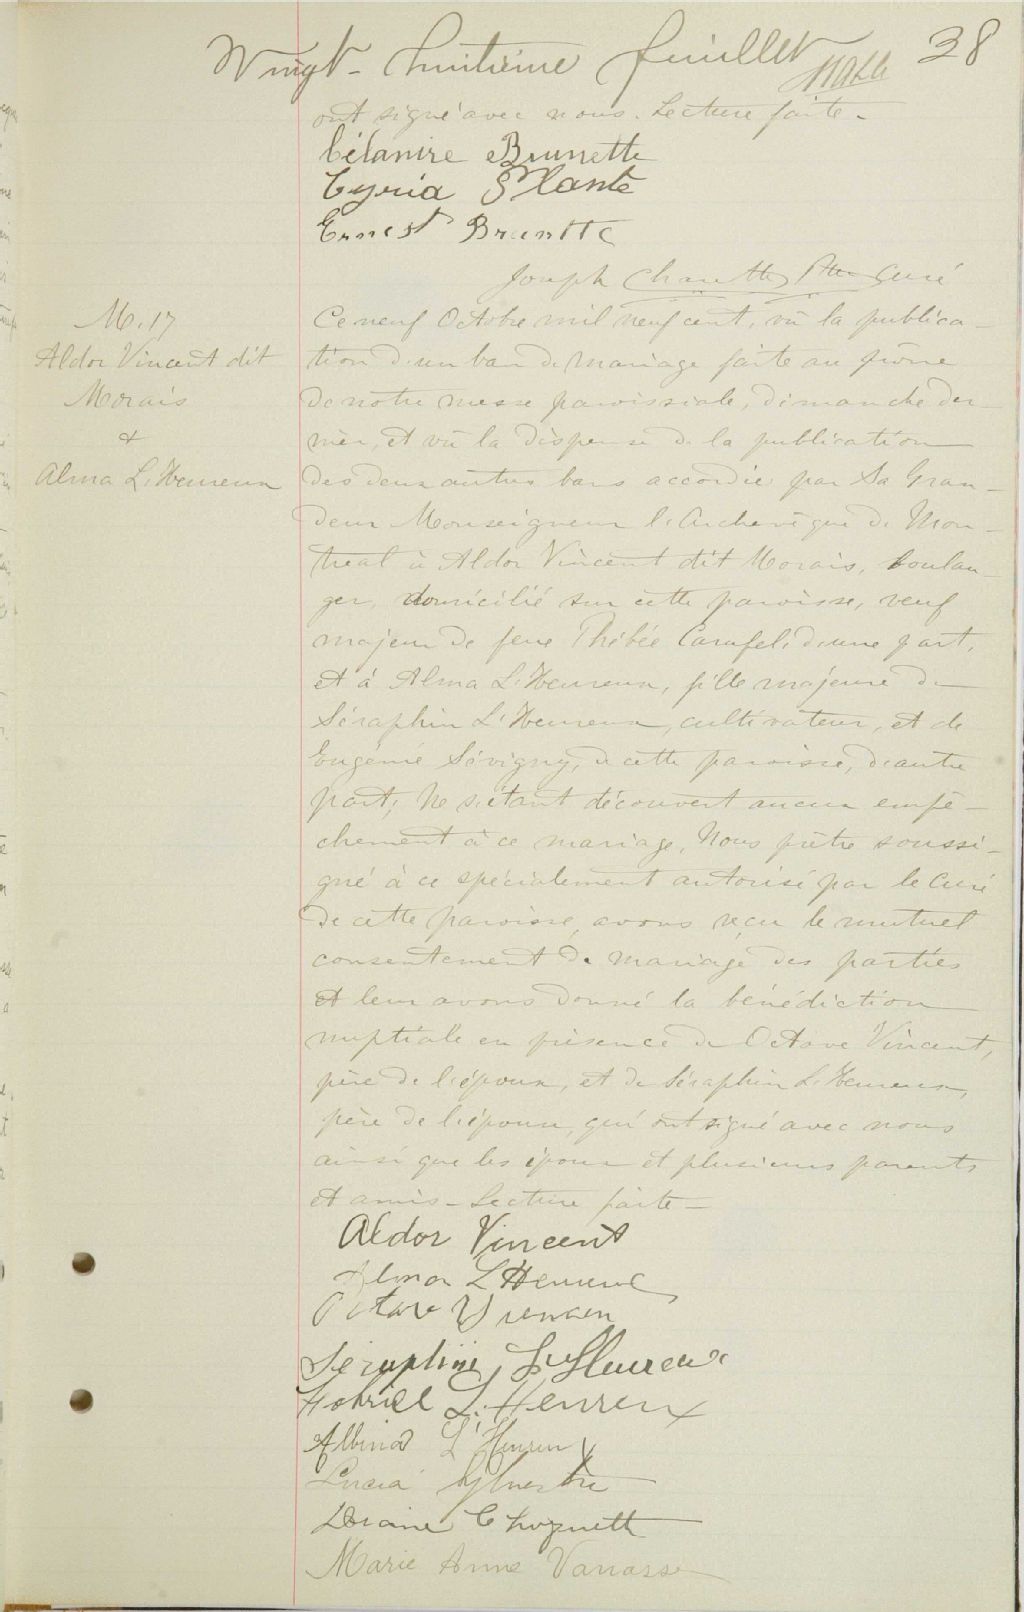 Vingt-huitième feuillet 38
ont signé avec nous. Lecture faite.
Célanire Brunette
Cyria Plante
Ernest Brunette
Joseph Charette Ptre Curé
M. 17
Aldor Vincent dit
Morais
&
Alma L'Heureux
Ce neuf Octobre mil neuf cent, vû la publica-
tion d'un ban de mariage faite au prône
de notre messe paroissiale, dimanche der-
nier, et vû la dispense de la publication
des deux autres bans accordée par Sa Gran-
deur Monseigneur l'Archevêque de Mon-
tréal à Aldor Vincent dit Morais, boulan-
ger, domicilié sur cette paroisse, veuf
majeur de feue Phébée Carufel, d'une part,
et à Alma L'Heureux, fille majeure de
Séraphin L'Heureux, cultivateur, et de
Eugénie Sévigny, de cette paroisse, d'autre
part; Ne s'étant découvert aucun empê-
chement à ce mariage, Nous prêtre soussi-
gné à ce spécialement autorisé par le Curé
de cette paroisse, avons reçu le mutuel
consentement de mariage des parties
et leur avons donné la bénédiction
nuptiale en présence de Octave Vincent,
père de l'époux, et de Séraphin L'Heureux,
père de l'épouse, qui ont signé avec nous
ainsi que les époux et plusieurs parents
et amis - Lecture faite -
Aldor Vincent
Alma L'Heureux
Octave
Séraphin L'Heureux
L'Heureux
Albina L'Heureux
Lucia Sylvestre
Choquette
Marie Anne Vanasse